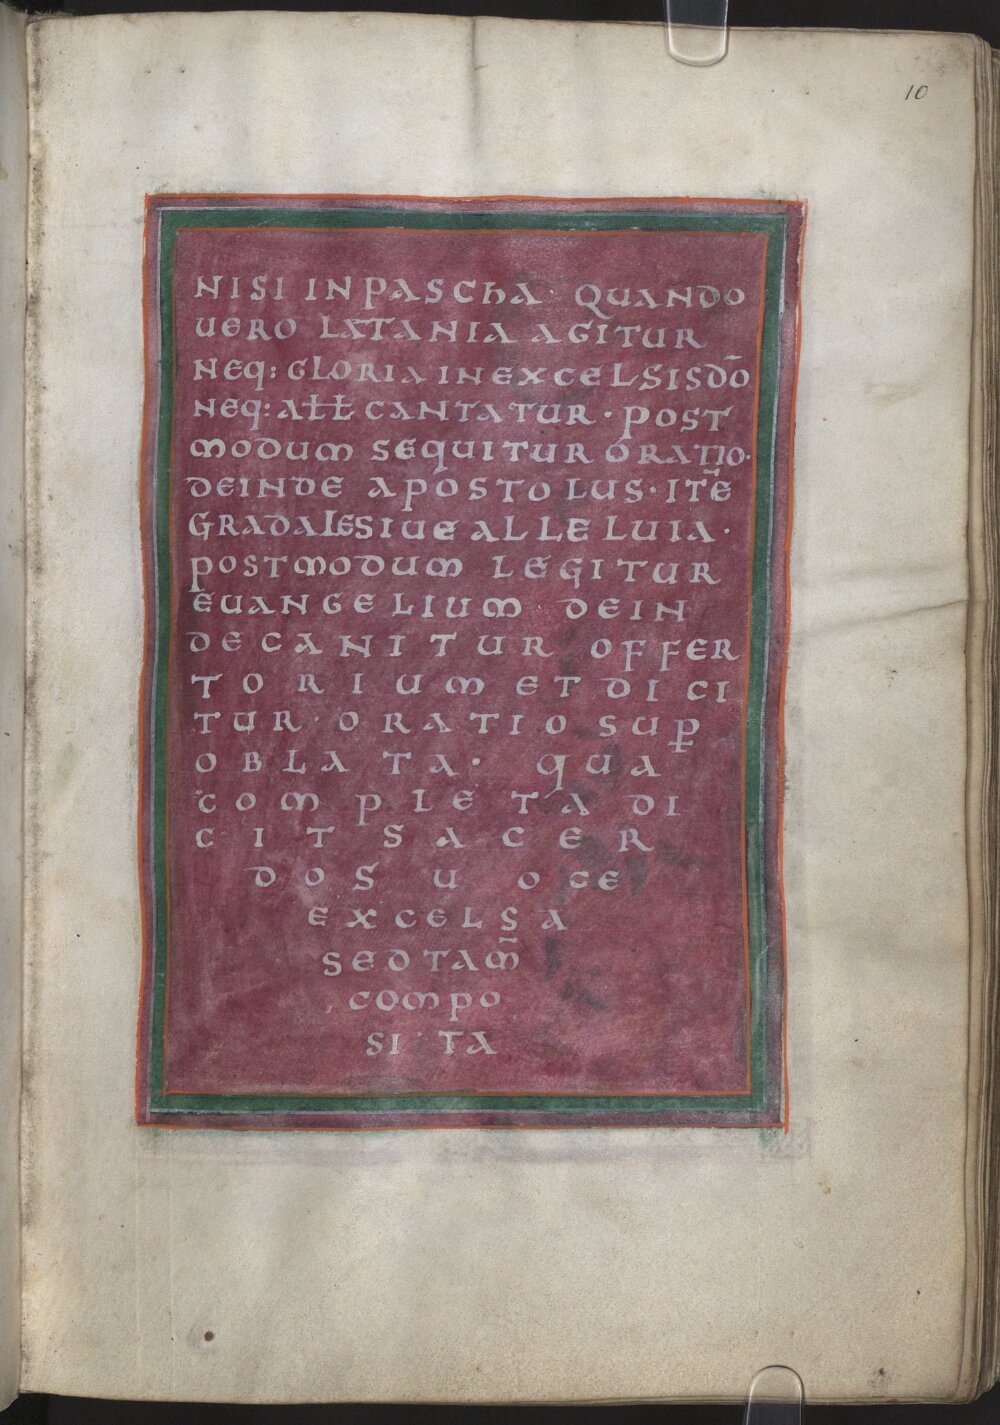 10
NISI IN PASCHA· QUANDO
UERO LATANIA AGITUR
NEQ: GLORIA IN EXCELSIS DŌ
NEQ: AŁŁ CANTATUR· POST
MODUM SEQUITUR ORATIO·
DEINDE APOSTOLUS· ITE̅
GRADALE SIUE ALLELUIA·
POSTMODUM LEGITUR
EUANGELIUM DEIN
DE CANITUR OFFER
TORIUM ET DICI
TUR· ORATIO SUꝑ
OBLATA· QUA
COMPLETA DI
CIT SACER
DOS UOCE
EXCELSA
SED TAM̄
COMPO
SITA